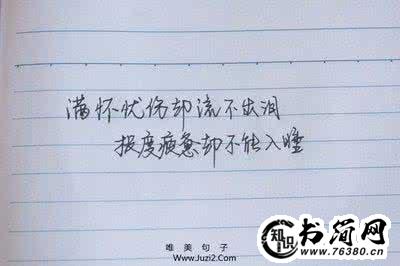 满怀忧伤却流不出泪
极度疲惫却不能入睡
唯美句子
www.Juzi2.com
知识
书简网
www.76380.cn